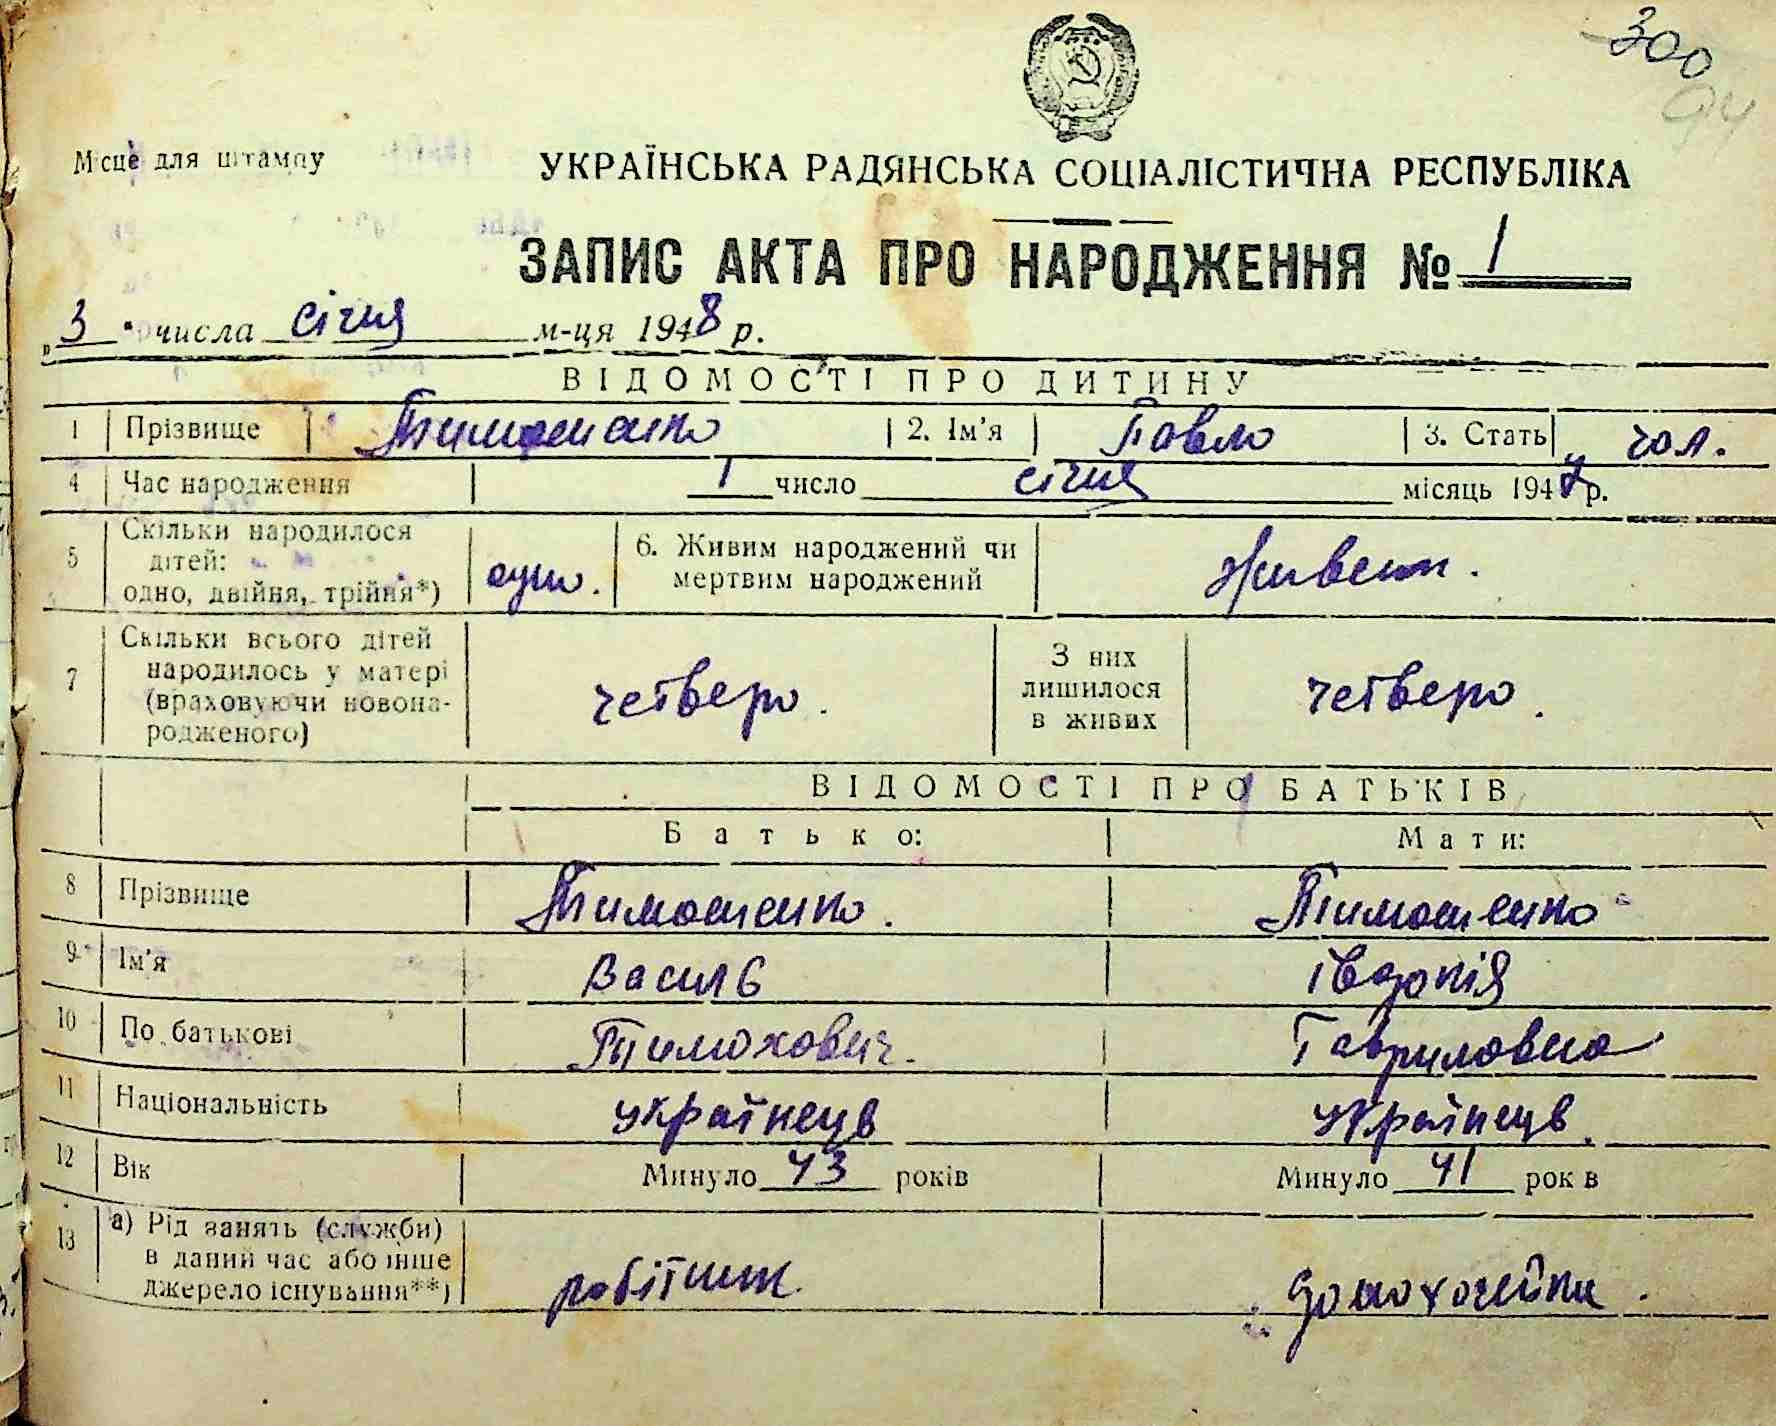 300
94
Місце для штампу
УКРАЇНСЬКА РАДЯНСЬКА СОЦІАЛІСТИЧНА РЕСПУБЛІКА
ЗАПИС АКТА ПРО НАРОДЖЕННЯ № 1
„3" числа січня м-ця 1948 р.
ВІДОМОСТІ ПРО ДИТИНУ
1 Прізвище Тимошенко 2. Ім'я Павло 3. Стать чол.
4 Час народження 1 число січня місяць 1948 р.
5 Скільки народилося дітей: одно, двійня, трійня*) одно. 6. Живим народжений чи мертвим народжений Живим.
7 Скільки всього дітей народилось у матері (враховуючи новонародженого) четверо. З них лишилося в живих четверо.
ВІДОМОСТІ ПРО БАТЬКІВ
Батько: Мати:
8 Прізвище Тимошенко. Тимошенко
9 Ім'я Василь Івдокія
10 По батькові Тимохович. Гавриловна
11 Національність українець українець.
12 Вік Минуло 43 років Минуло 41 років
13 а) Рід занять (служби) в даний час або інше джерело існування**) робітник. домохозяйка.